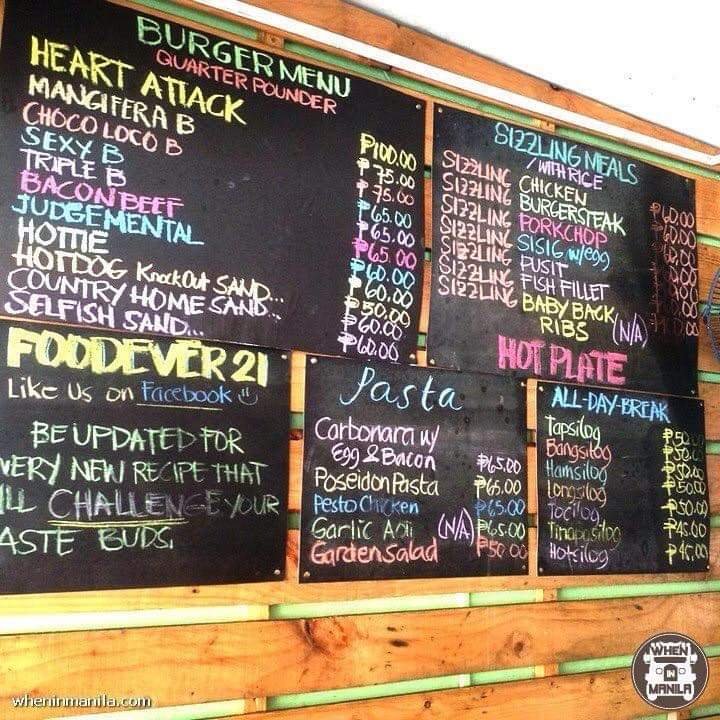 BURGER MENU
QUARTER POUNDER
HEART ATTACK ₱100.00
MANGIFERA B ₱75.00
CHOCO LOCO B ₱75.00
SEXY B ₱65.00
TRIPLE B ₱65.00
BACON BEEF ₱65.00
JUDGEMENTAL ₱60.00
HOTTIE ₱60.00
HOTDOG KnockOut SAND... ₱50.00
COUNTRY HOME SAND... ₱60.00
SELFISH SAND... ₱60.00
SIZZLING MEALS
/WITH RICE
SIZZLING CHICKEN ₱60.00
SIZZLING BURGERSTEAK ₱60.00
SIZZLING PORKCHOP
SIZZLING SISIG w/egg
SIZZLING PUSIT
SIZZLING FISH FILLET
BABY BACK
RIBS (N/A)
HOT PLATE
FOODEVER 21
Like Us on Facebook
BE UPDATED FOR
VERY NEW RECIPE THAT
ILL CHALLENGE YOUR
ASTE BUDS.
Pasta
Carbonara w/
Egg & Bacon ₱65.00
Poseidon Pasta ₱65.00
Pesto Chicken ₱65.00
Garlic Aoli (N/A) ₱65.00
Garden Salad ₱50.00
ALL-DAY-BREAK
Tapsilog ₱50.00
Bangsilog ₱50.00
Hamsilog ₱50.00
Longsilog ₱50.00
Tocilog ₱50.00
Tinapasilog ₱45.00
Hotsilog ₱45.00
WHEN
IN
MANILA
wheninmanila.com